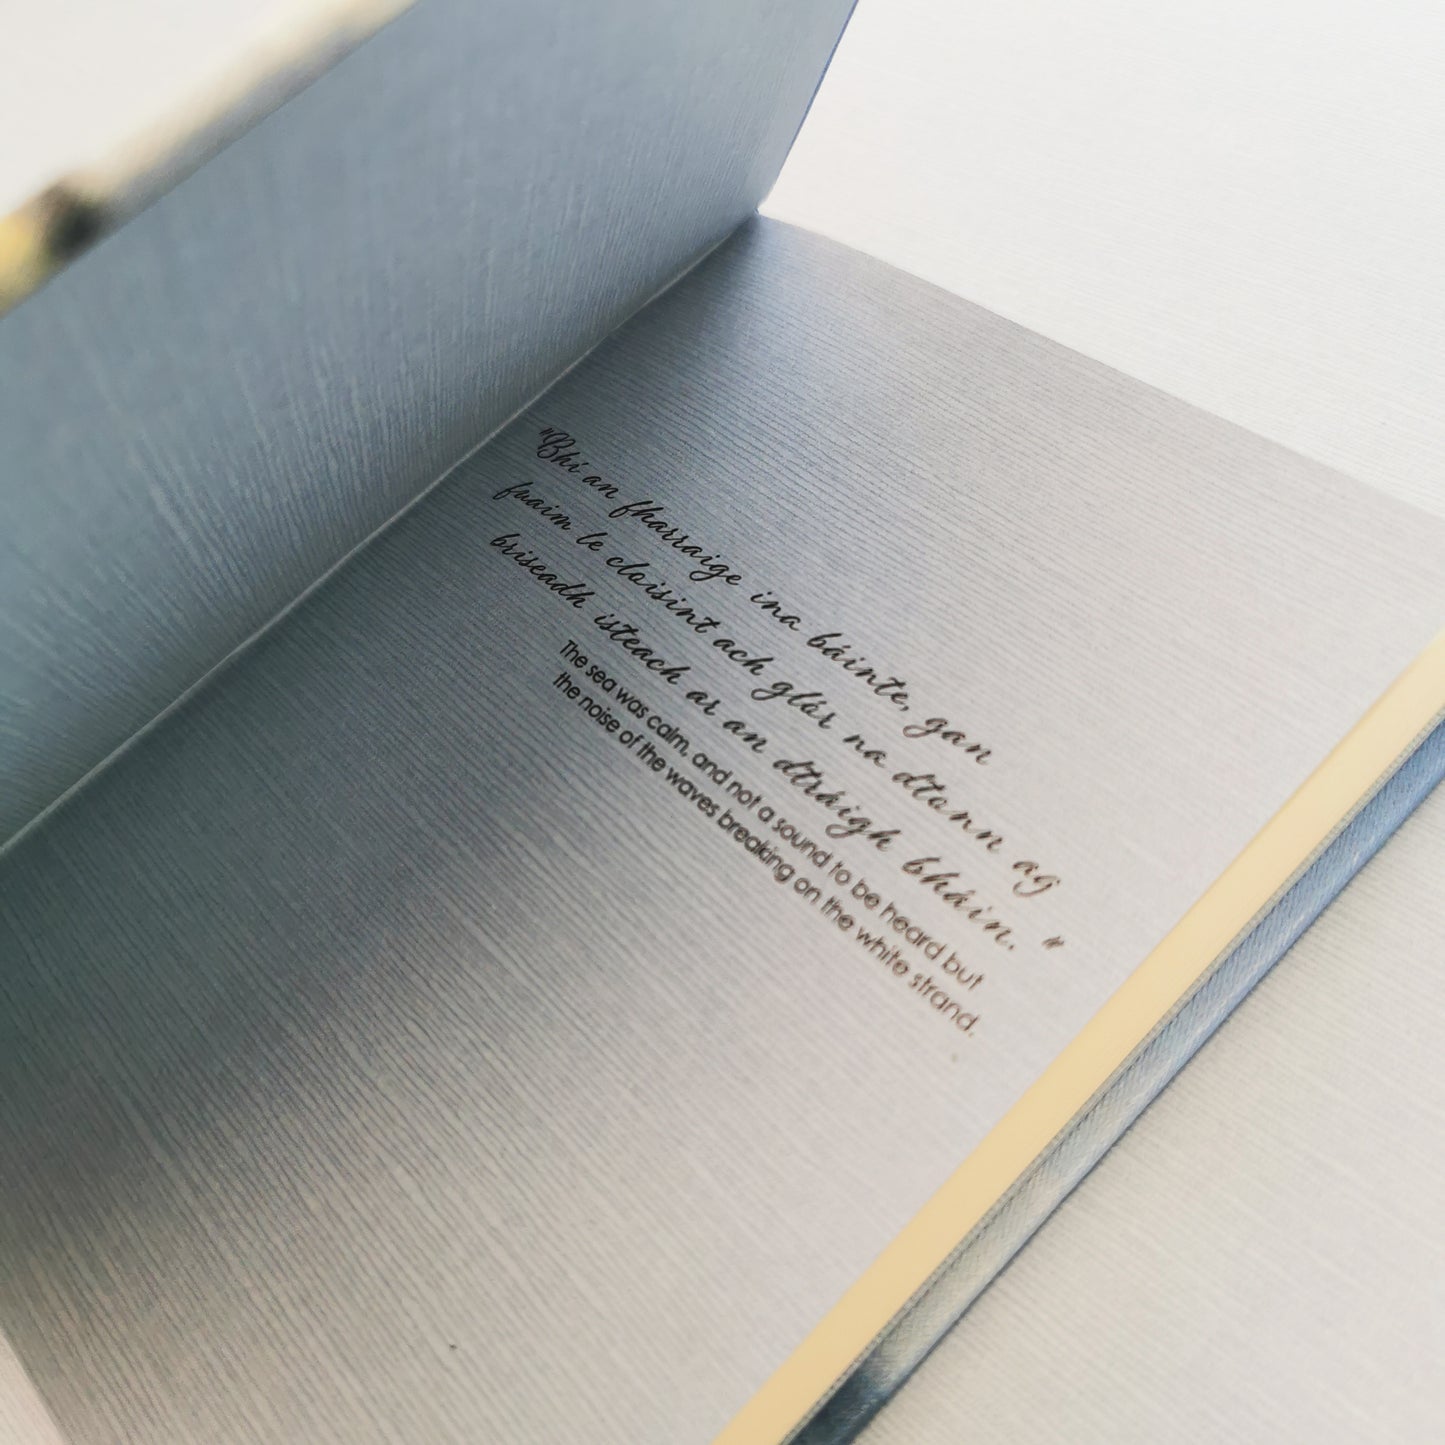 "Bhí an fharraige ina báinte, gan
fuaim le cloisint ach glór na dtonn ag
briseadh isteach ar an dtráigh bháin. "
The sea was calm, and not a sound to be heard but
the noise of the waves breaking on the white strand.